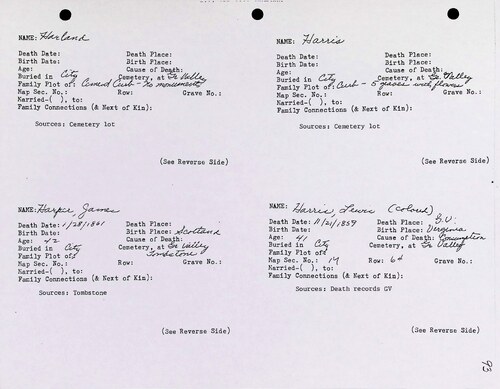 NAME: Harland
Death Date: Death Place:
Birth Date: Birth Place:
Age: Cause of Death:
Buried in City Cemetery, at Gr Valley
Family Plot of: Cement Curb - No monuments
Map Sec. No.: Row: Grave No.:
Married-( ), to:
Family Connections (& Next of Kin):
Sources: Cemetery lot
(See Reverse Side)
NAME: Harris
Death Date: Death Place:
Birth Date: Birth Place:
Age: Cause of Death:
Buried in City Cemetery, at Gr Valley
Family Plot of: Curb - 5 graves with flowers
Map Sec. No.: Row: Grave No.:
Married-( ), to:
Family Connections (& Next of Kin):
Sources: Cemetery lot
(See Reverse Side)
NAME: Harper, James
Death Date: 1/28/1861 Death Place:
Birth Date: Birth Place: Scotland
Age: 42 Cause of Death:
Buried in City Cemetery, at Gr Valley
Family Plot of: Tombstone
Map Sec. No.: Row: Grave No.:
Married-( ), to:
Family Connections (& Next of Kin):
Sources: Tombstone
(See Reverse Side)
NAME: Harris, Lewis (Colored)
Death Date: 11/21/1859 Death Place: G.V.
Birth Date: Birth Place: Virginia
Age: 41 Cause of Death: Consumption
Buried in City Cemetery, at Gr Valley
Family Plot of:
Map Sec. No.: 14 Row: 6d Grave No.:
Married-( ), to:
Family Connections (& Next of Kin):
Sources: Death records GV
(See Reverse Side)